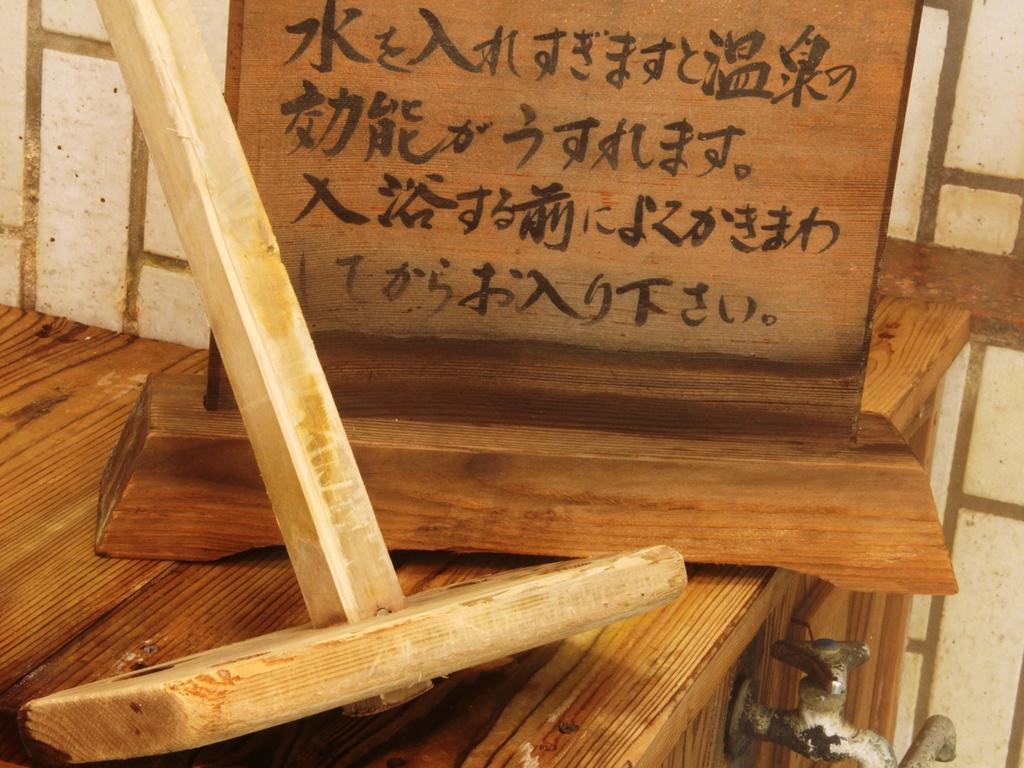 水を入れすぎますと温泉の
効能がうすれます。
入浴する前によくかきまわ
してからお入り下さい。